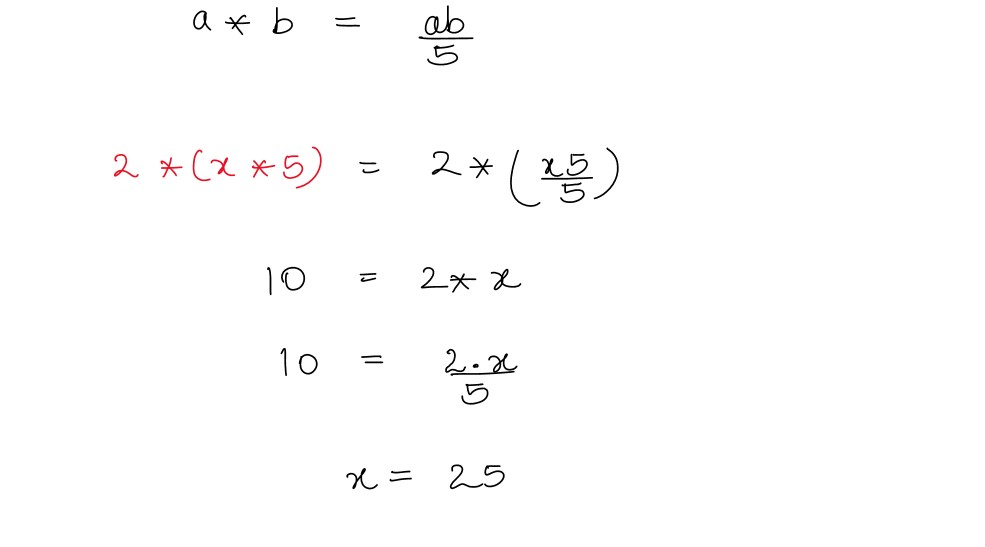 a * b = ab/5
2 * (x * 5) = 2 * (x5/5)
10 = 2 * x
10 = 2.x/5
x = 25